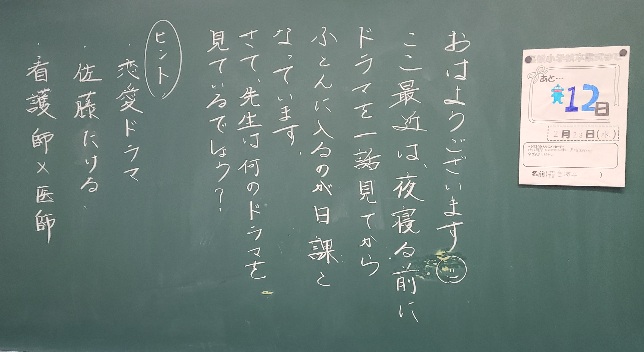 おはようございます
ここ最近は、夜寝る前に
ドラマを一話見てから
ふとんに入るのが日課と
なっています
さて、先生は何のドラマを
見ているでしょう？
ヒント
・恋愛ドラマ
・佐藤たける
・看護師×医師
あと…
12日